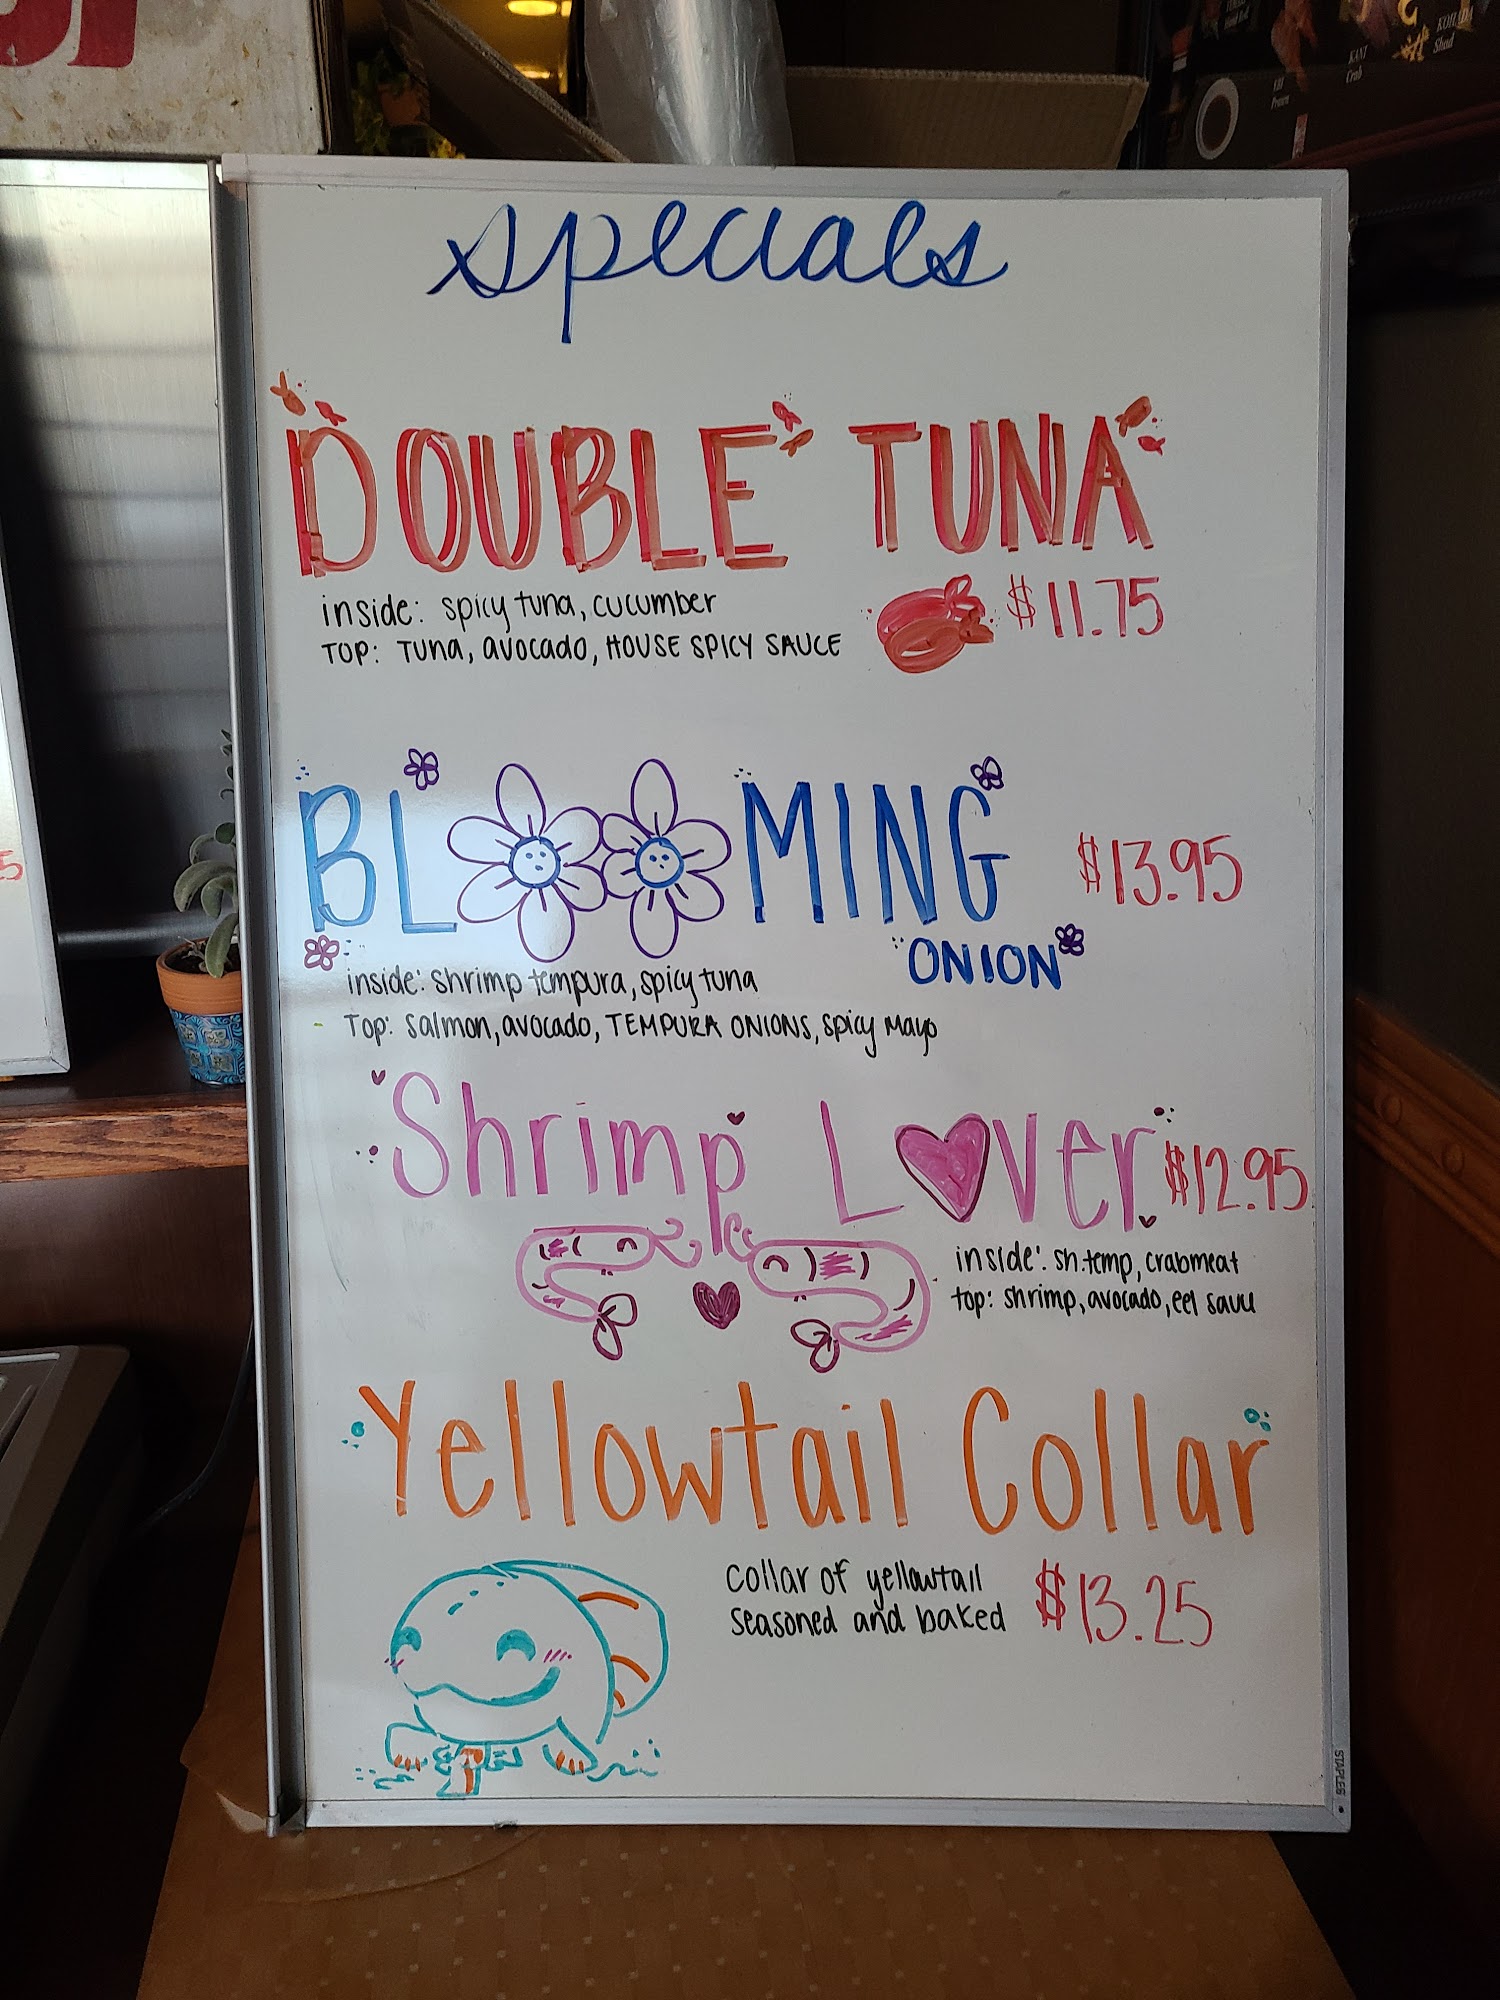 specials
DOUBLE TUNA
inside: spicy tuna, cucumber
TOP: TUNA, avocado, HOUSE SPICY SAUCE
$11.75
BLOOMING
$13.95
ONION
inside: shrimp tempura, spicy tuna
Top: salmon, avocado, TEMPURA ONIONS, spicy Mayo
Shrimp Lover
$12.95
inside: sh.temp, crabmeat
top: shrimp, avocado, eel sauce
Yellowtail Collar
collar of yellowtail
seasoned and baked
$13.25
STAPLES
KANI
Crab
KOHADA
Shad